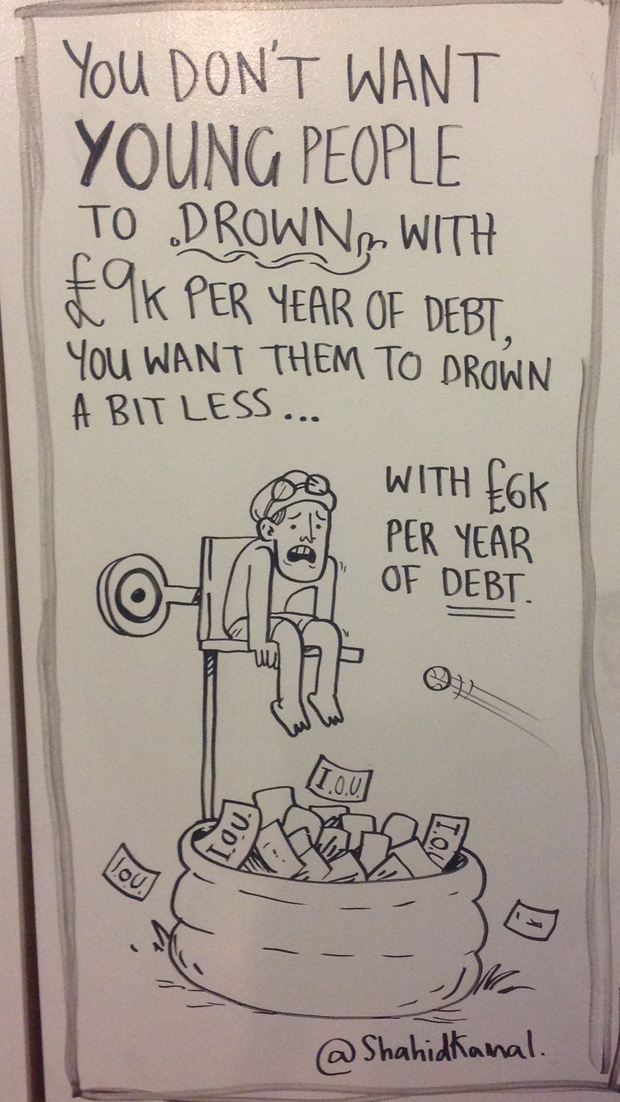 YOU DON'T WANT
YOUNG PEOPLE
TO DROWN WITH
£9K PER YEAR OF DEBT,
YOU WANT THEM TO DROWN
A BIT LESS...
WITH £6K
PER YEAR
OF DEBT.
I.O.U.
I.O.U.
I.O.U.
I.O.U.
@ShahidKamal.